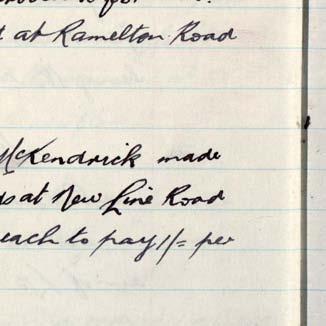 at Ramelton Road
McKendrick made
at New Line Road
each to pay 1/= per